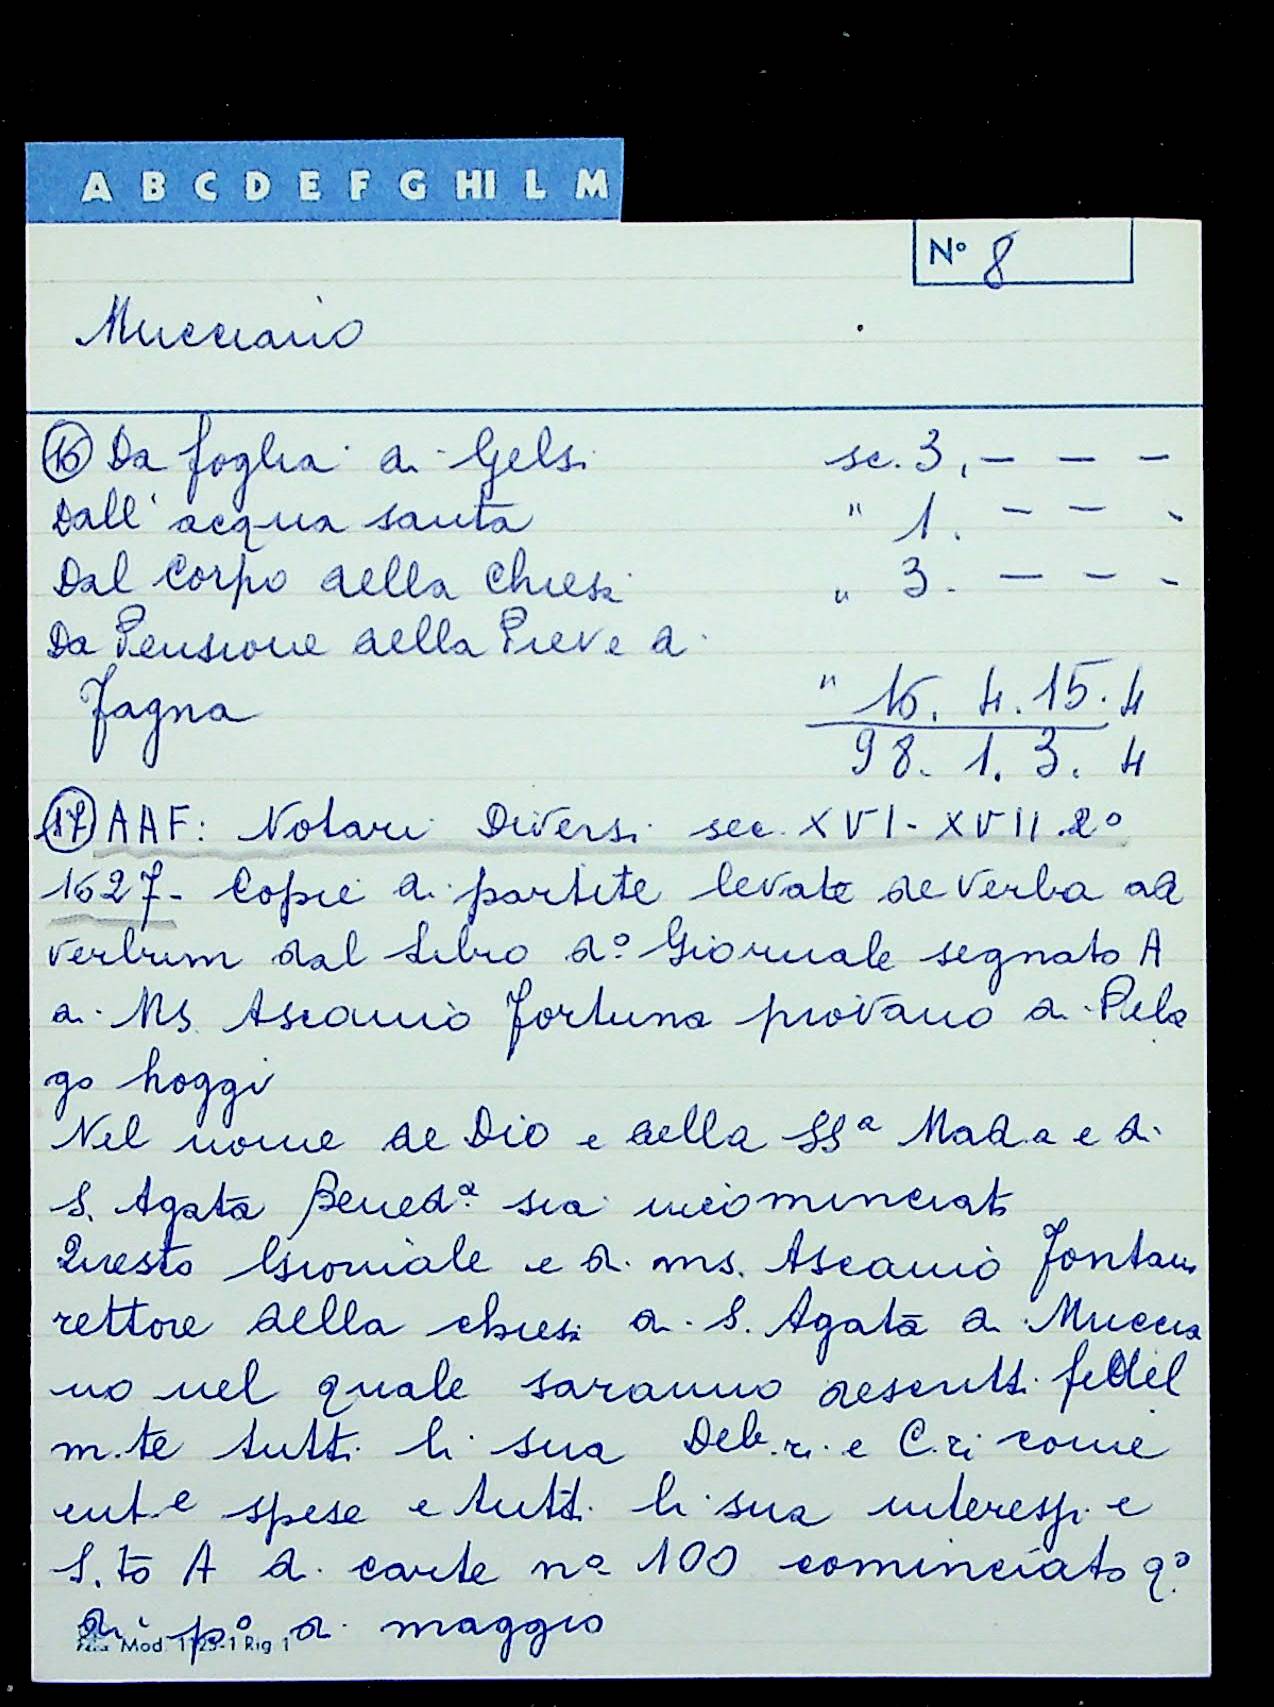 A B C D E F G HI L M
N° 8
Mucciano
16 Da foglia di Gelsi sc. 3. — — —
Dall'acqua santa " 1. — — -
Dal Corpo della Chiesa " 3. — — -
Da Pensione della Pieve di
Fagna " 16. 4. 15. 4
98. 1. 3. 4
17 AAF: Notari Diversi sec. XVI - XVII. 2°
1627 - Copie di partite levate de verba ad
verbum dal Libro d° Giornale segnato A
di Ms. Ascanio Fortuna piovano di Pela
go hoggi
Nel nome de Dio e della SSª Mad.a e di
S. Agata Bened.ª sia incominciato
Questo Giornale e di ms. Ascanio
rettore della chiesa di S. Agata di Muccia
no nel quale saranno descritti fedel
m.te tutti li sua Deb.ri e C.ri come
ent.e spese e tutti li sua interessi e
S.to A di carte n° 100 cominciato q.°
dì p° di maggio
Mod. 1125-1 Rig 1